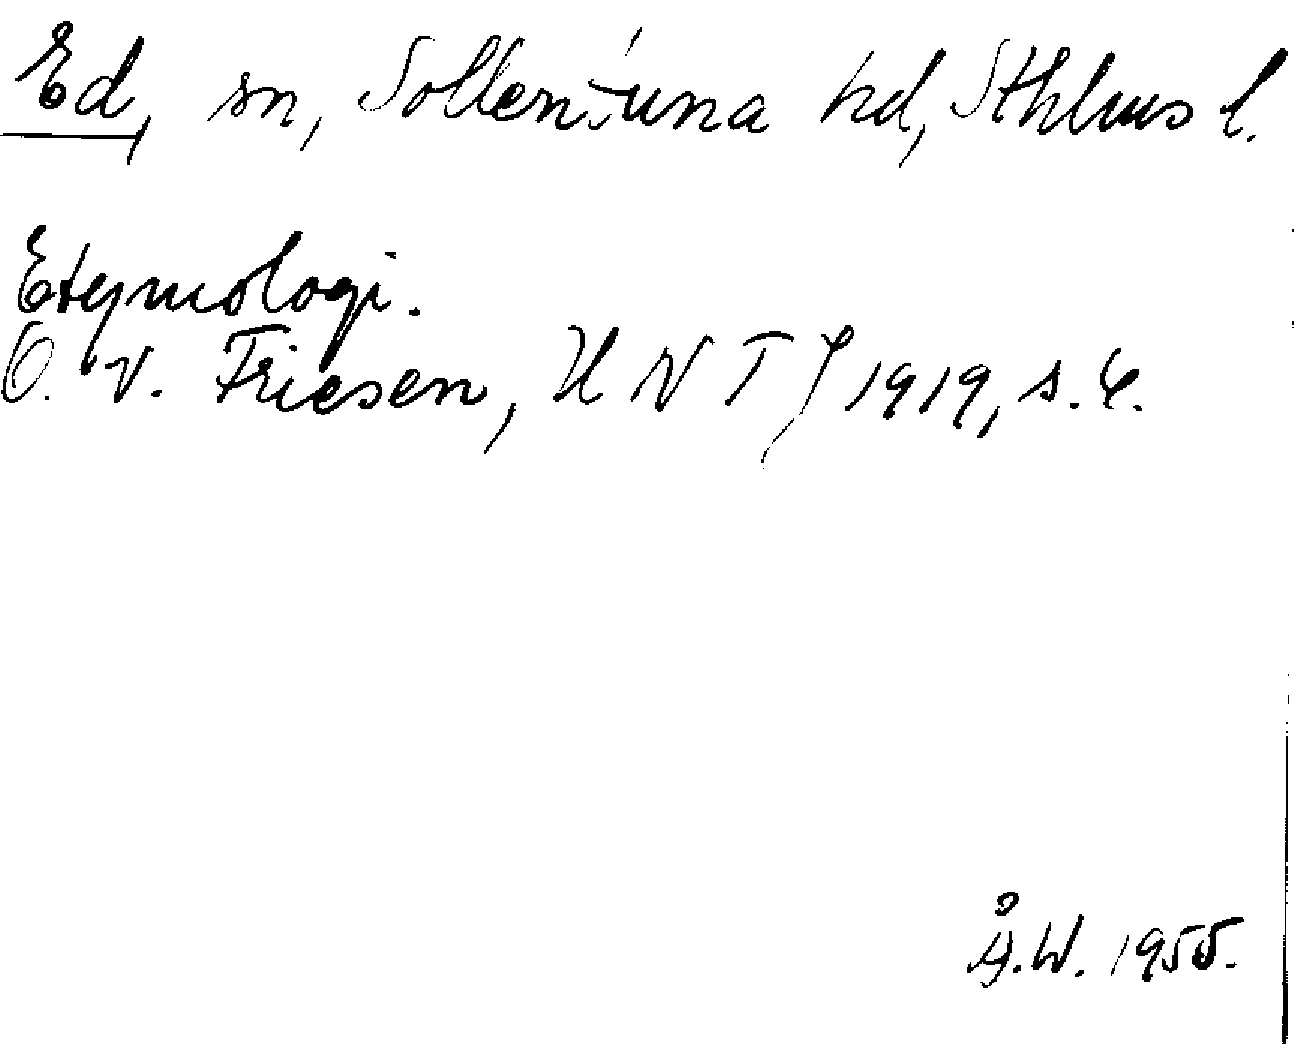 Ed, sn, Sollentuna hd, Sthlms l.
Etymologi.
O. v. Friesen, UNTJ 1919, s. 4.
Å.W. 1955.